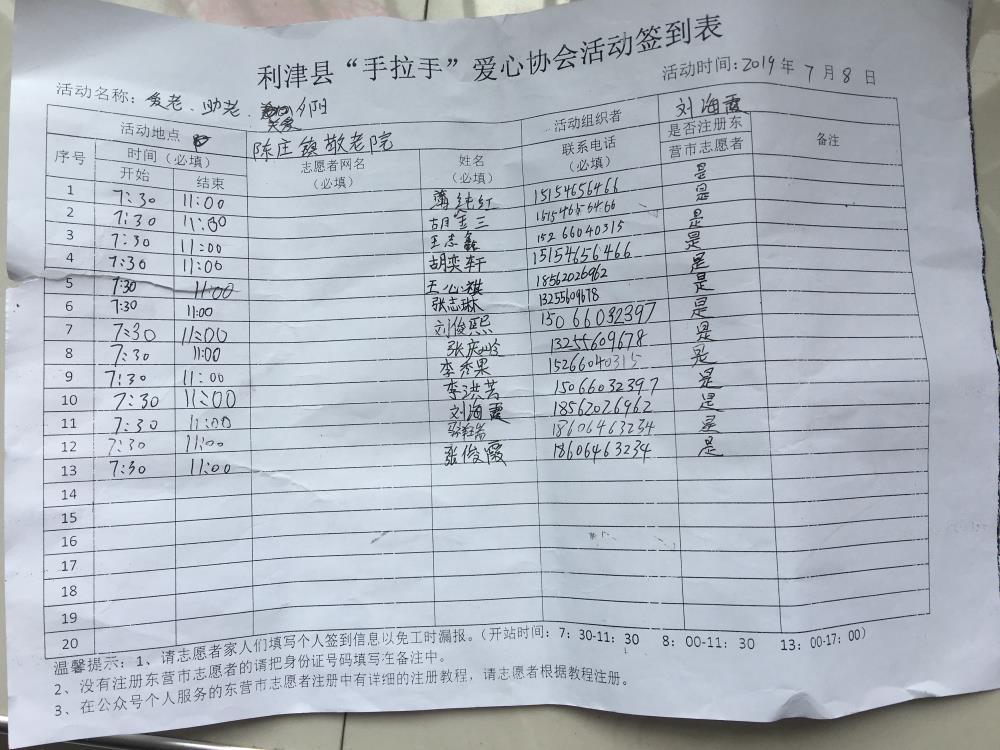 利津县“手拉手”爱心协会活动签到表
活动名称：爱老、助老、关爱夕阳 活动时间:2019年7月8日
活动地点 陈庄镇敬老院 活动组织者 刘海霞
序号 时间（必填） 志愿者网名（必填） 姓名（必填） 联系电话（必填） 是否注册东营市志愿者 备注
开始 结束
1 7:30 11:00 薄纯红 15154656466 是
2 7:30 11:00 胡金三 15154656466 是
3 7:30 11:00 王志鑫 15266040315 是
4 7:30 11:00 胡奕轩 15154656466 是
5 7:30 11:00 王心祺 18562026962 是
6 7:30 11:00 张志琳 13255609678 是
7 7:30 11:00 刘俊熙 15066032397 是
8 7:30 11:00 张庆 13255609678 是
9 7:30 11:00 李秀果 15266040315 是
10 7:30 11:00 李洪芳 15066032397 是
11 7:30 11:00 刘海霞 18562026962 是
12 7:30 11:00 18606463234 是
13 7:30 11:00 张俊霞 18606463234 是
14
15
16
17
18
19
20
温馨提示：1、请志愿者家人们填写个人签到信息以免工时漏报。（开站时间：7：30-11：30 8：00-11：30 13：00-17：00）
2、没有注册东营市志愿者的请把身份证号码填写在备注中。
3、在公众号个人服务的东营市志愿者注册中有详细的注册教程，请志愿者根据教程注册。